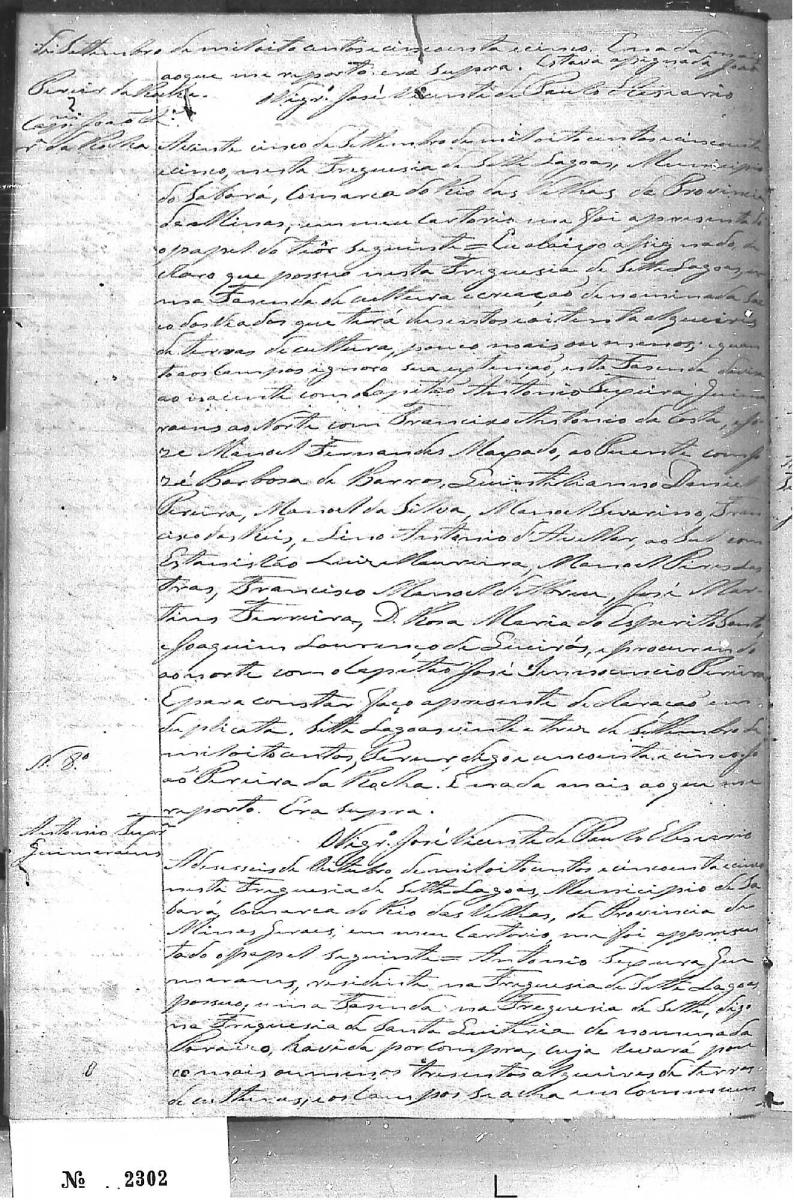 de Settembro de mil oito centos e cincoenta e cinco. E nada mais
ao que me reporto era supra. Estava assignado João
Pereira da Rocha. O Vigr.º José Vicente de Paulo Elesiario
Cap.m João P.
r.ª da Rocha
A vinte cinco de Settembro de mil oito centos e cincoenta
e cinco, nesta Freguesia de Sette Lagoas, Municipio
do Sabará, Comarca do Rio das Velhas da Provincia
de Minas, em meu Cartorio me foi apresentado
o papel do teôr seguinte = Eu abaixo assignado, de
claro que possuo nesta Freguesia de Sette Lagoas, u
ma Fasenda de cultura e creação, denominada
co dos Veados que terá dusentos e oitenta alqueires
de terras de cultura, pouco mais ou menos: quan
to aos Campos ignoro sua extenção, esta Fasenda devisa
ao nascente com Capitão Antonio Texeira Guima
raens ao Norte com Francisco Antonio da Costa, e Jo
zé Manoel Fernandes Maxado, ao Puente com Jo
zé Barbosa de Barros, Quintilianno Daniel
Pereira, Manoel da Silva, Manoel Severino, Fran
cisco dos Reis, e Lino Antonio d'Avellar, ao Sul com
Estanislão Luiz Maureira, Manoel Pires das
tras, Francisco Manoel d'Abreu, José Mar-
tins Ferreira, D. Rosa Maria do Espirito Santo
e Joaquim Lourenço de Queirós, e procurando
ao norte com o Capitão José Innocencio Pereira
E para constar faço a presente declaracaõ em
duplicata. Sette Lagoas vinte e trez de Settembro de
mil oito centos, Perur digo e cincoenta e cinco Jo
aõ Pereira da Rocha. E nada mais ao que me
reporto. Era supra.
O Vigr.º José Vicente de Paulo Elesiario
N. 8.º
Antonio Texr.ª
Guimeraens
A deseseis de Outubro de mil oito centos e cincoenta e cinco
nesta Freguesia de Sette Lagoas, Municipio de Sa
bará, Comarca do Rio das Velhas, da Provincia de
Minas Geraes, em meu Cartorio me foi appresen
tado o papel seguinte = Antonio Texeira Gui
meraens, residente na Freguesia de Sette Lagoas
possuo, uma Fasenda na Freguesia de Sette, digo
na Freguesia de Santa Quiteria denominada
Paraizo, havida por compra, cuja levará pou
co mais ou menos tresentos alqueires de terras
de culturas, e os Campos se acha em Commum
8
Nº 2302